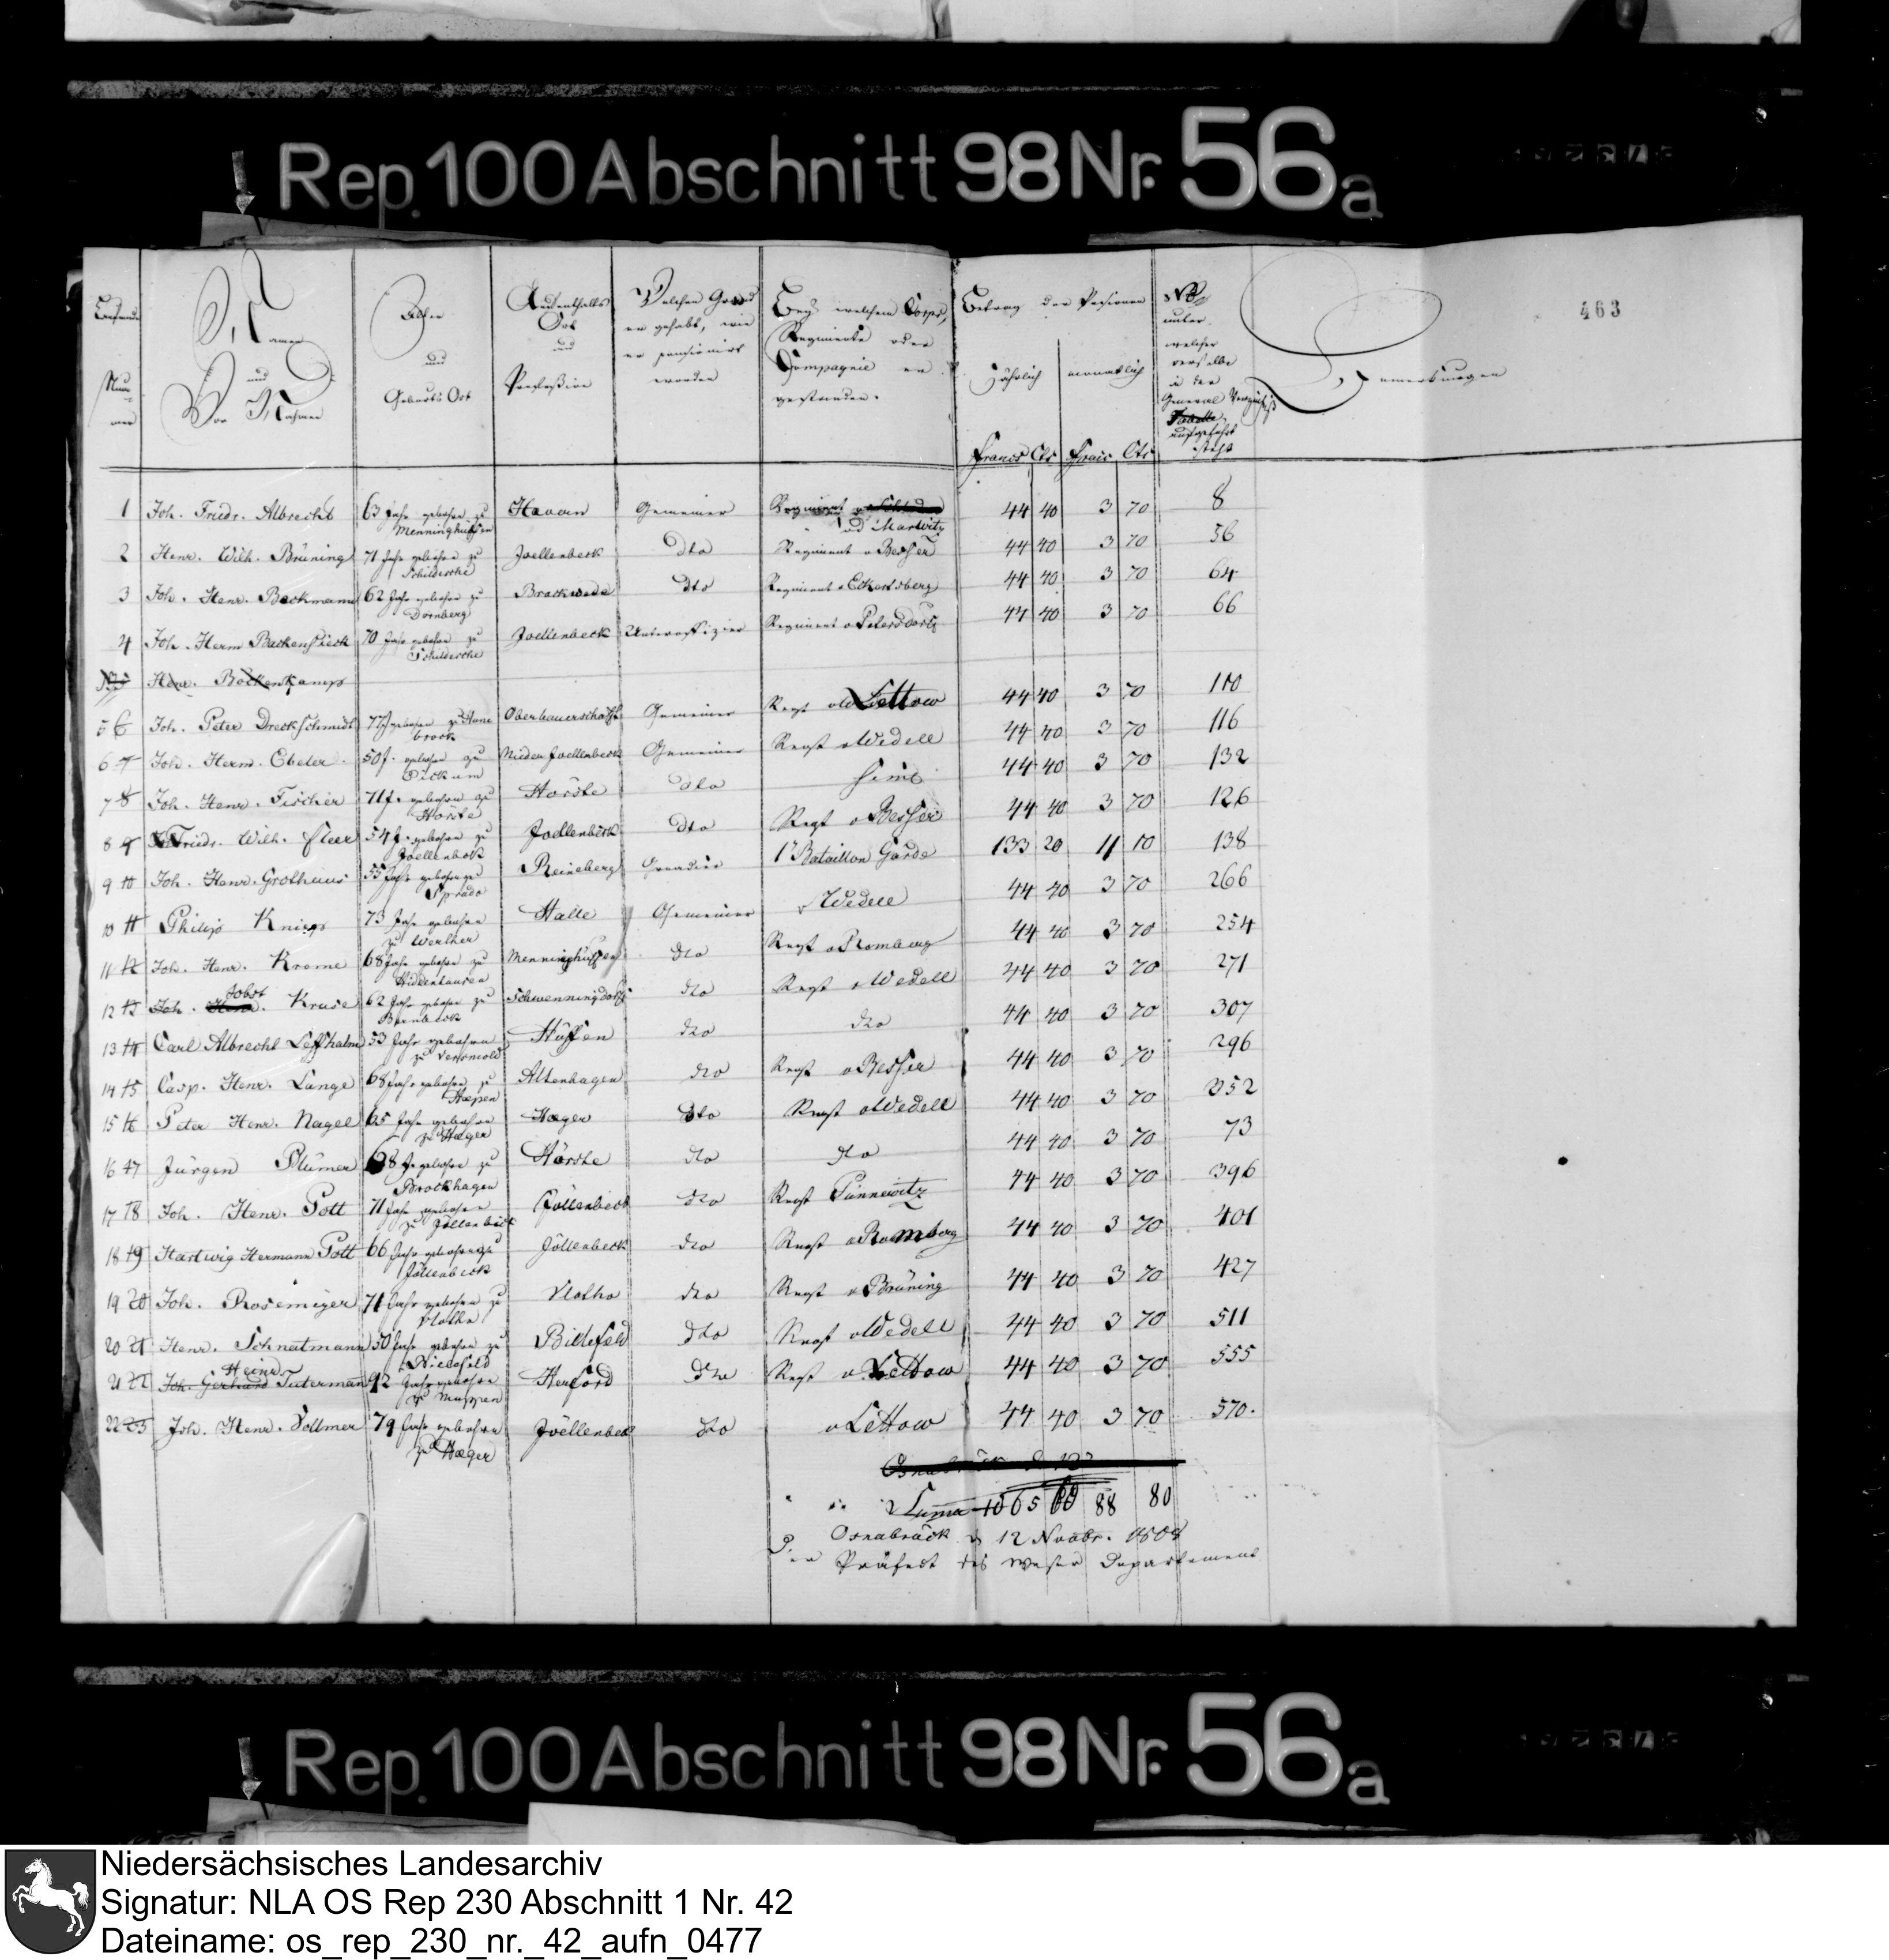 Rep. 100 Abschnitt 98 Nr. 56a
463
Laufende Num̅er
Namen und Vor Nahmen
Alter und Geburts Ort
Aufenthalts Ort und Profession
Welchen Grad er gehabt, wie er pensionirt worden
Bey welchem Corps, Regimente oder Compagnie er gestanden.
Betrag der Pensionen
jährlich monatlich
Francs Cts Francs Cts
No unter welcher derselbe in der General aufgeführt steht
Bemerkungen
1 Joh. Friedr. Albrecht 63 Jahr gebohren zu Menninghüffen Gemeiner Regiment Marwitz 44 40 3 70 8
2 Henr. Wilh. Brüning 71 Jahr gebohren zu Schildesche Joellenbeck dto Regiment v Besser 44 40 3 70 56
3 Joh. Henr. Beckmann 62 Jahr gebohren zu Dornberg Brackwede dto Regiment v Eckartsberg 44 40 3 70 64
4 Joh. Herm Beckensieck 70 Jahr gebohren zu Schildesche Joellenbeck Unteroffizier Regiment v Petersdorff 44 40 3 70 66
Henr. Böckenkamp
5 6 Joh. Peter Dreckschmidt 77 J gebohren zu Oberbauerschafft Gemeiner Regt v Lettow 44 40 3 70 110
6 7 Joh. Herm. Ebeler 50 J. gebohren zu Dickum Nieder Joellenbeck Gemeiner Regt v Wedell 44 40 3 70 116
7 8 Joh. Henr. Fischer 71 J. gebohren zu Hörste Hörste dto 44 40 3 70 132
8 9 Friedr. Wilh. Fleer 54 J. gebohren zu Joellenbeck Joellenbeck dto Regt v Besser 44 40 3 70 126
9 10 Joh. Henr. Grothaus 55 Jahr gebohren zu Sprado Reineberg Grenadier 1r Bataillon Garde 133 20 11 10 138
10 11 Philip Knigge 73 Jahr gebohren zu Werther Halle Gemeiner v Wedell 44 40 3 70 266
11 12 Joh. Henr. Kreme 68 Jahr gebohren zu Hiddenhausen Menninghüffen dto Regt v Romberg 44 40 3 70 254
12 13 Joh. Jobst Kruse 62 Jahr gebohren zu Schwenningdorff dto Regt v Wedell 44 40 3 70 271
13 14 Carl Albrecht 53 Jahr gebohren zu Versmold Hüffen dto dto 44 40 3 70 307
14 15 Casp. Henr. Lange 68 Jahr gebohren zu Heepen Altenhagen dto Regt v Besser 44 40 3 70 296
15 16 Peter Henr. Nagel 65 Jahr gebohren zu Hæger Hæger dto Regt v Wedell 44 40 3 70 352
16 17 Jürgen Plümer 68 J gebohren zu Brockhagen Hörste dto dto 44 40 3 70 73
17 18 Joh. Henr. Pott 71 Jahr gebohren zu Jöllenbeck Jöllenbeck dto Regt Punnewitz 44 40 3 70 396
18 19 Hartwig Hermann Pott 66 Jahr gebohren zu Jöllenbeck Jöllenbeck dto Regt v Romberg 44 40 3 70 401
19 20 Joh. Rosemeyer 71 Jahr gebohren zu Vlotho Vlotho dto Regt v Brüning 44 40 3 70 427
20 21 Henr. Schnatmann 50 Jahr gebohren zu Bielefeld Billefeld dto Regt v Wedell 44 40 3 70 511
21 22 Joh. Gerhard Heinr Tuterman 92 Jahr gebohren zu Herford dto Regt v Lettow 44 40 3 70 555
22 23 Joh. Henr. Vollmer 79 Jahr gebohren zu Hæger Joellenbeck dto v Lettow 44 40 3 70 570.
Summa 1065 60 88 80
Osnabrück d 12 Novbr. 1808
Der Präfect des Weser Departement
Rep. 100 Abschnitt 98 Nr. 56a
Niedersächsisches Landesarchiv
Signatur: NLA OS Rep 230 Abschnitt 1 Nr. 42
Dateiname: os_rep_230_nr._42_aufn_0477